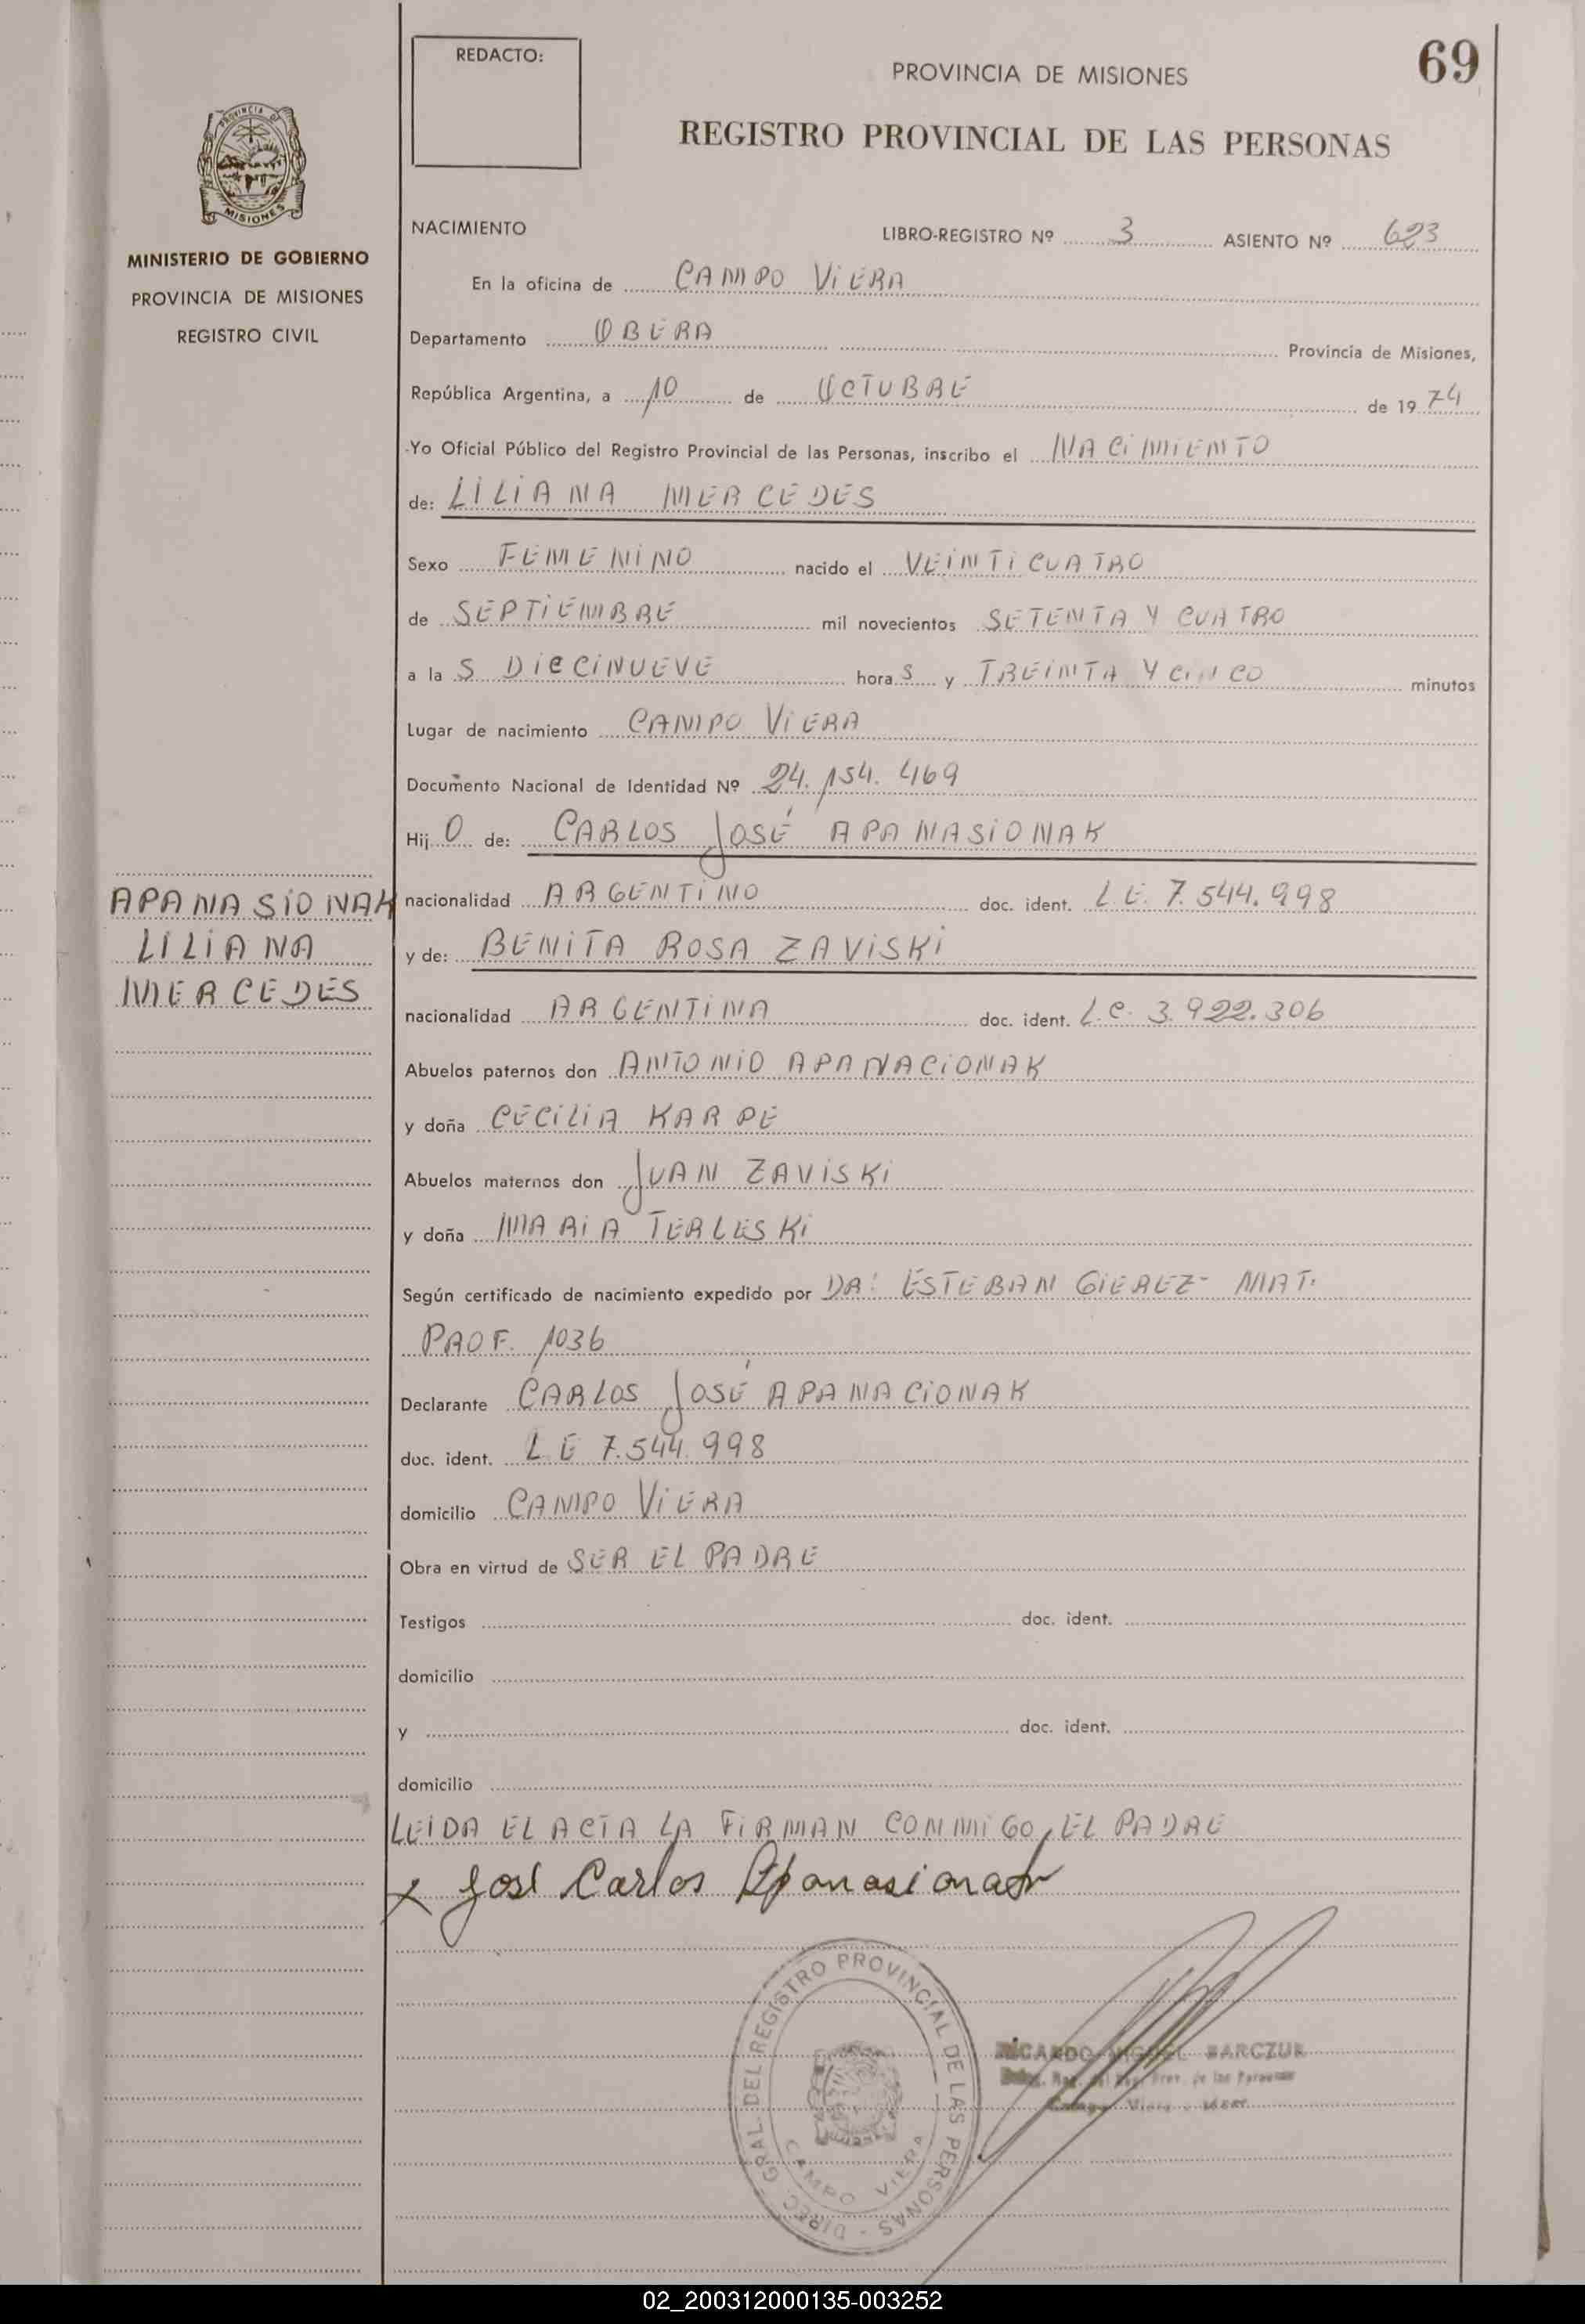 REDACTO:
PROVINCIA DE MISIONES
69
REGISTRO PROVINCIAL DE LAS PERSONAS
PROVINCIA DE
MISIONES
MINISTERIO DE GOBIERNO
PROVINCIA DE MISIONES
REGISTRO CIVIL
NACIMIENTO
LIBRO-REGISTRO Nº 3 ASIENTO Nº 623
En la oficina de CAMPO VIERA
Departamento OBERA Provincia de Misiones,
República Argentina, a 10 de OCTUBRE de 1974
Yo Oficial Público del Registro Provincial de las Personas, inscribo el NACIMIENTO
de: LILIANA MERCEDES
Sexo FEMENINO nacido el VEINTICUATRO
de SEPTIEMBRE mil novecientos SETENTA Y CUATRO
a la S DIECINUEVE hora S y TREINTA Y CINCO minutos
Lugar de nacimiento CAMPO VIERA
Documento Nacional de Identidad Nº 24.154.469
Hij O de: CARLOS JOSÉ APANASIONAK
APANASIONAK
LILIANA
MERCEDES
nacionalidad ARGENTINO doc. ident. L.E. 7.544.998
y de: BENITA ROSA ZAVISKI
nacionalidad ARGENTINA doc. ident. L.C. 3.922.306
Abuelos paternos don ANTONIO APANACIONAK
y doña CECILIA KARPE
Abuelos maternos don JUAN ZAVISKI
y doña MARIA TERLESKI
Según certificado de nacimiento expedido por DR: ESTEBAN GIEREZ- MAT.
PROF. 1036
Declarante CARLOS JOSÉ APANACIONAK
doc. ident. L.E 7.544.998
domicilio CAMPO VIERA
Obra en virtud de SER EL PADRE
Testigos doc. ident.
domicilio
y doc. ident.
domicilio
LEIDA EL ACTA LA FIRMAN CONMIGO, EL PADRE
x José Carlos Apanasionak
DIREC. GRAL. DEL REGISTRO PROVINCIAL DE LAS PERSONAS -
CAMPO VIERA
RICARDO MIGUEL BARCZUK
Prov. de las Personas
Campo Viera
02_200312000135-003252